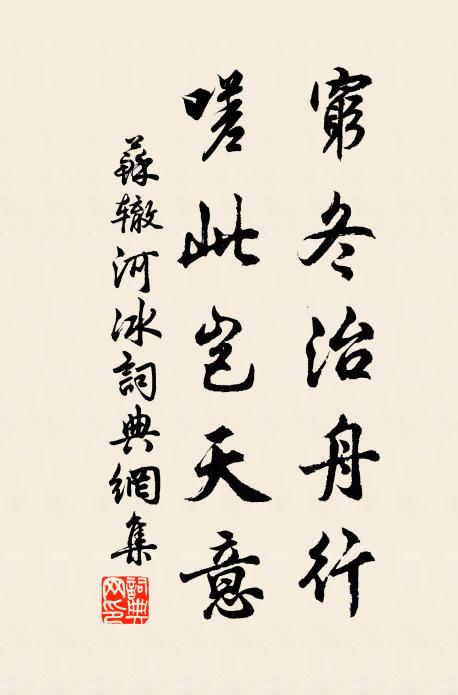 窮冬治舟行
嗟此豈天意
蘇辙河冰詞典網集
詞典網印